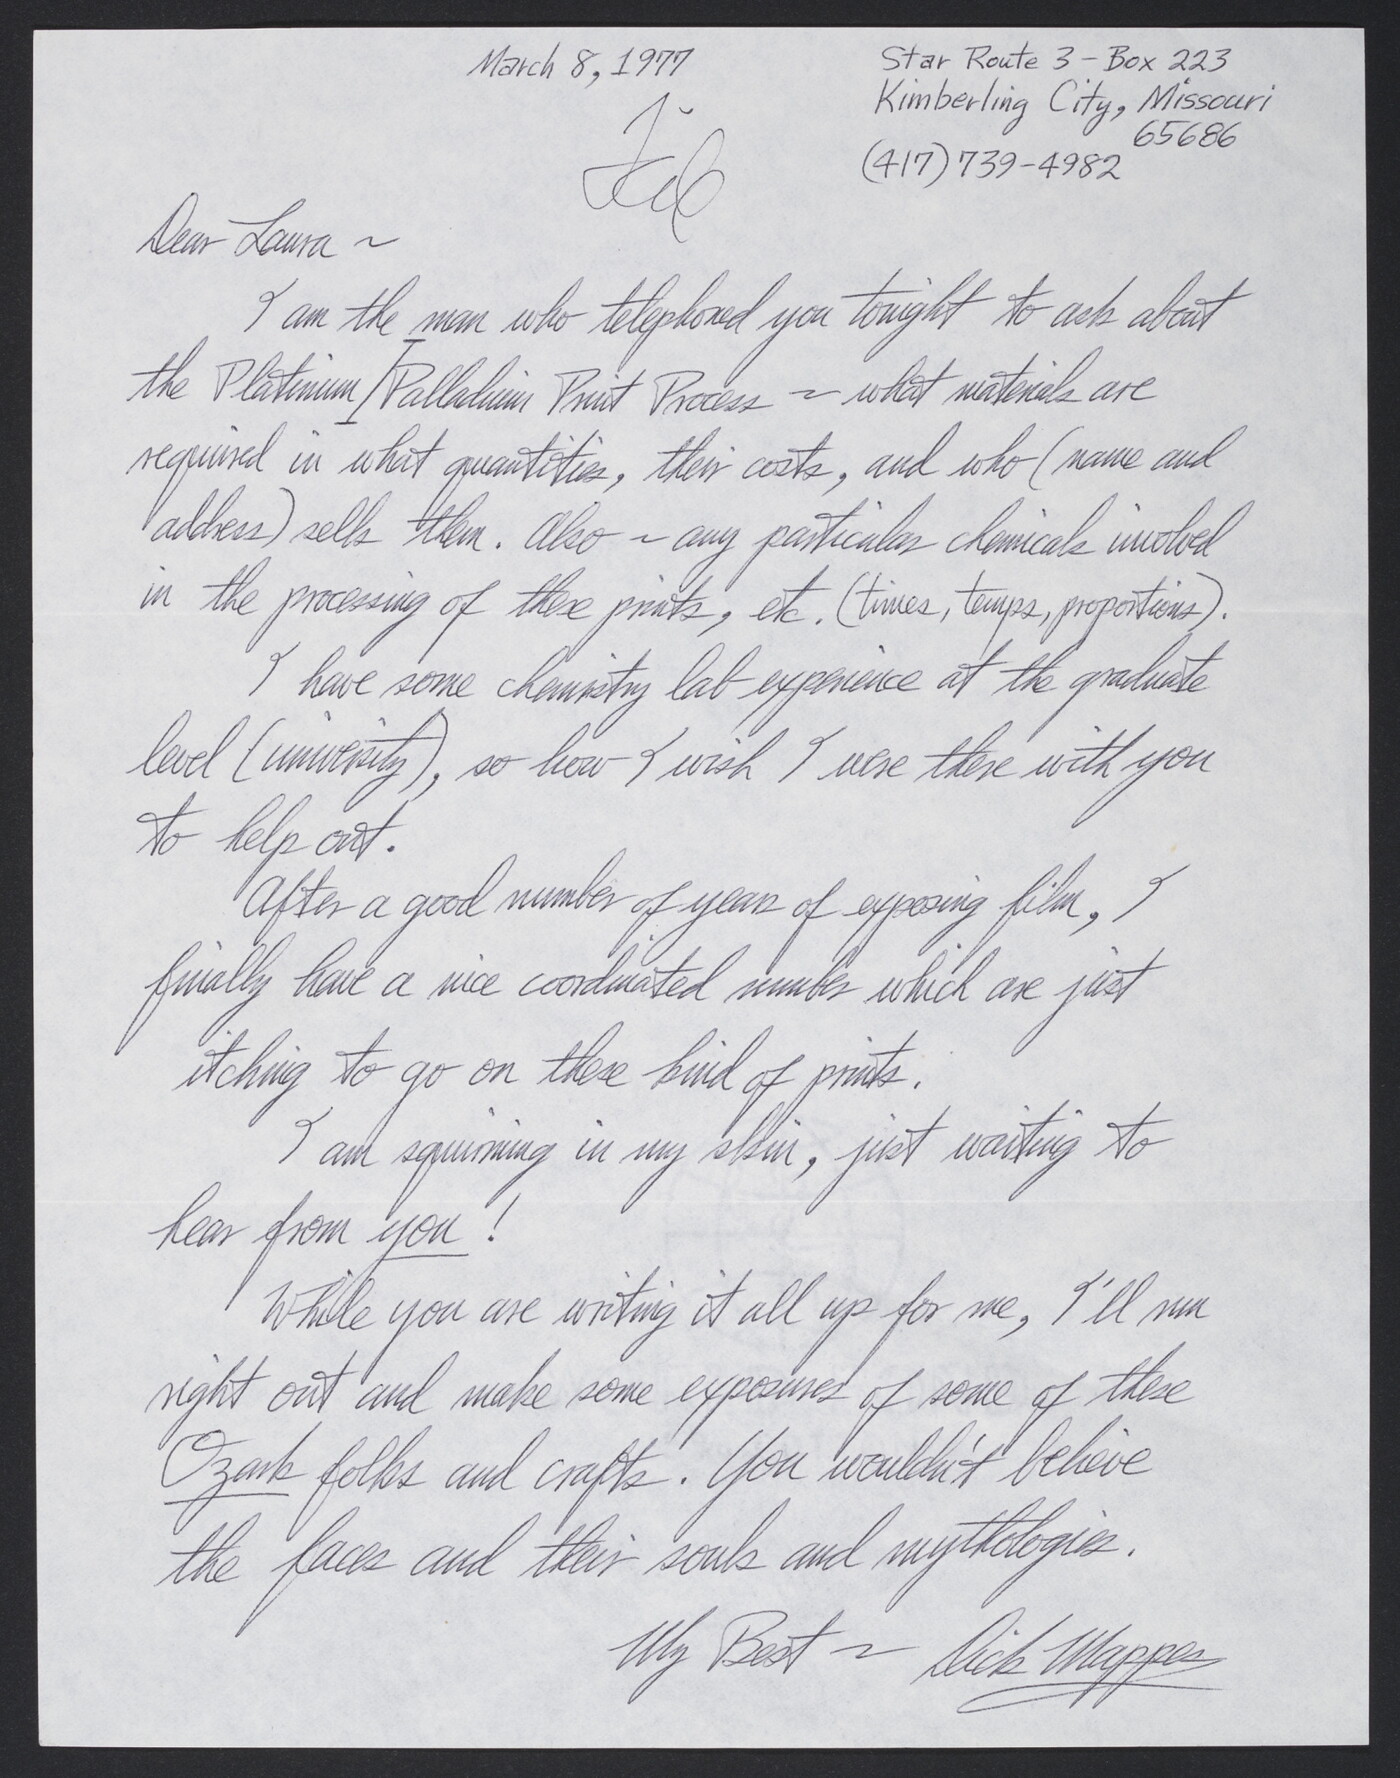 March 8, 1977
Star Route 3 - Box 223
Kimberling City, Missouri
65686
(417) 739-4982
Dear Laura ~
I am the man who telephoned you tonight to ask about
the Platinum/Palladium Print Process ~ what materials are
required in what quantities, their costs, and who (name and
address) sells them. Also ~ any particular chemicals involved
in the processing of these prints, etc. (times, temps, proportions).
I have some chemistry lab experience at the graduate
level (university), so how I wish I were there with you
to help out.
After a good number of years of exposing film, I
finally have a nice coordinated number which are just
itching to go on these kind of prints.
I am squirming in my skin, just waiting to
hear from you!
While you are writing it all up for me, I'll run
right out and make some exposures of some of these
Ozark folks and crafts. You wouldn't believe
the faces and their souls and mythologies.
My Best ~ Dick Mappes